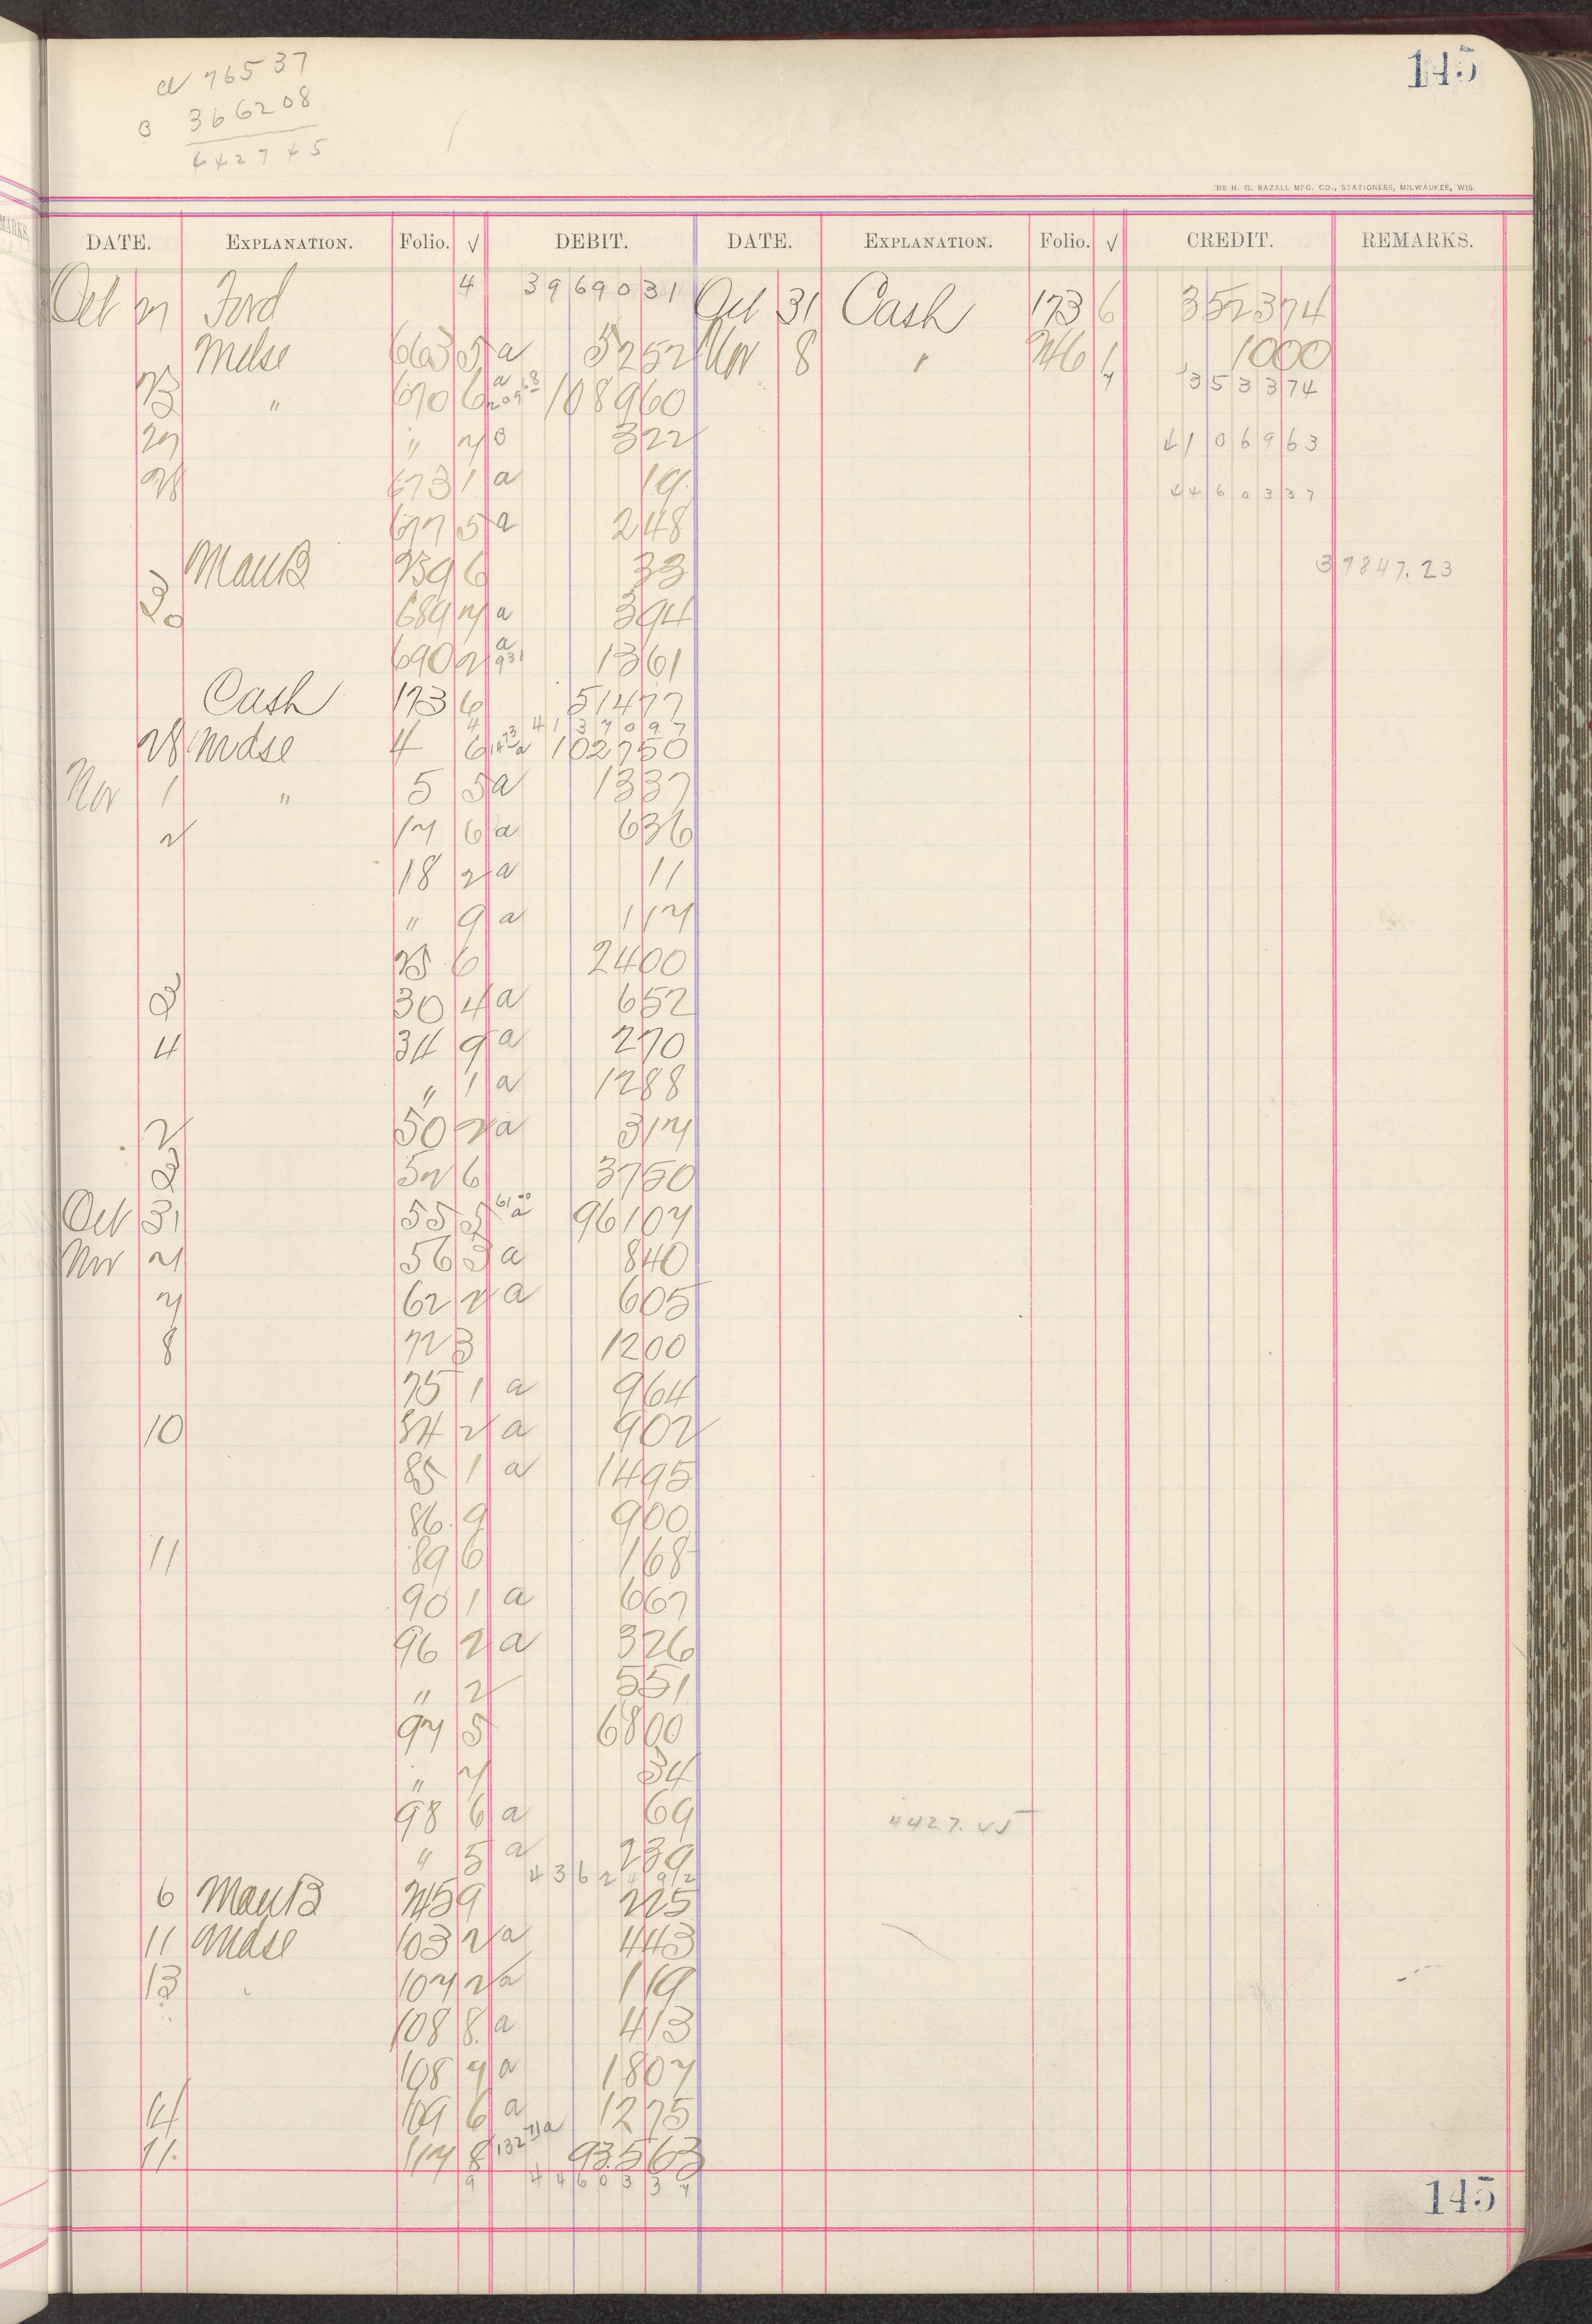 145
a 76537
o 366208
442745
THE H. G. RAZALL MFG. CO., STATIONERS, MILWAUKEE, WIS.
DATE. EXPLANATION. Folio. √ DEBIT. DATE. EXPLANATION. Folio. √ CREDIT. REMARKS.
Oct 27 Ford 4 3969031 Oct 31 Cash 173 6 352374
Mdse 663 5 a 5252 Nov 8 " 246 1 1000
23 " 670 6 a 108960 7 353374
27 " 7 0 322 4106963
28 673 1 a 19 4460337
677 5 a 248
ManB 239 6 33 39847.23
30 689 7 a 394
690 2 a 931 1361
Cash 173 6 51477
4 4137097
28 Mdse 4 6 a 102750
Nov 1 " 5 5 a 1337
2 17 6 a 636
18 2 a 11
" 9 a 117
25 6 2400
3 30 4 a 652
4 34 9 a 270
" 1 a 1288
2 50 2 a 317
3 52 6 3750
Oct 31 55 5 6100 a 96107
Nov 7 56 3 a 840
7 62 2 a 605
8 72 3 1200
75 1 a 964
10 84 2 a 902
85 1 a 1495
86 9 900
11 89 6 168
90 1 a 667
96 2 a 326
" 2 551
97 5 6800
" 7 34
98 6 a 69 4427.45
" 5 a 239
4362492
6 ManB 245 9 225
11 Mdse 103 2 a 443
13 " 107 2 a 119
108 8 a 413
108 7 a 1807
14 109 6 a 1275
11 117 8 13271 a 93563
9 4460337
145